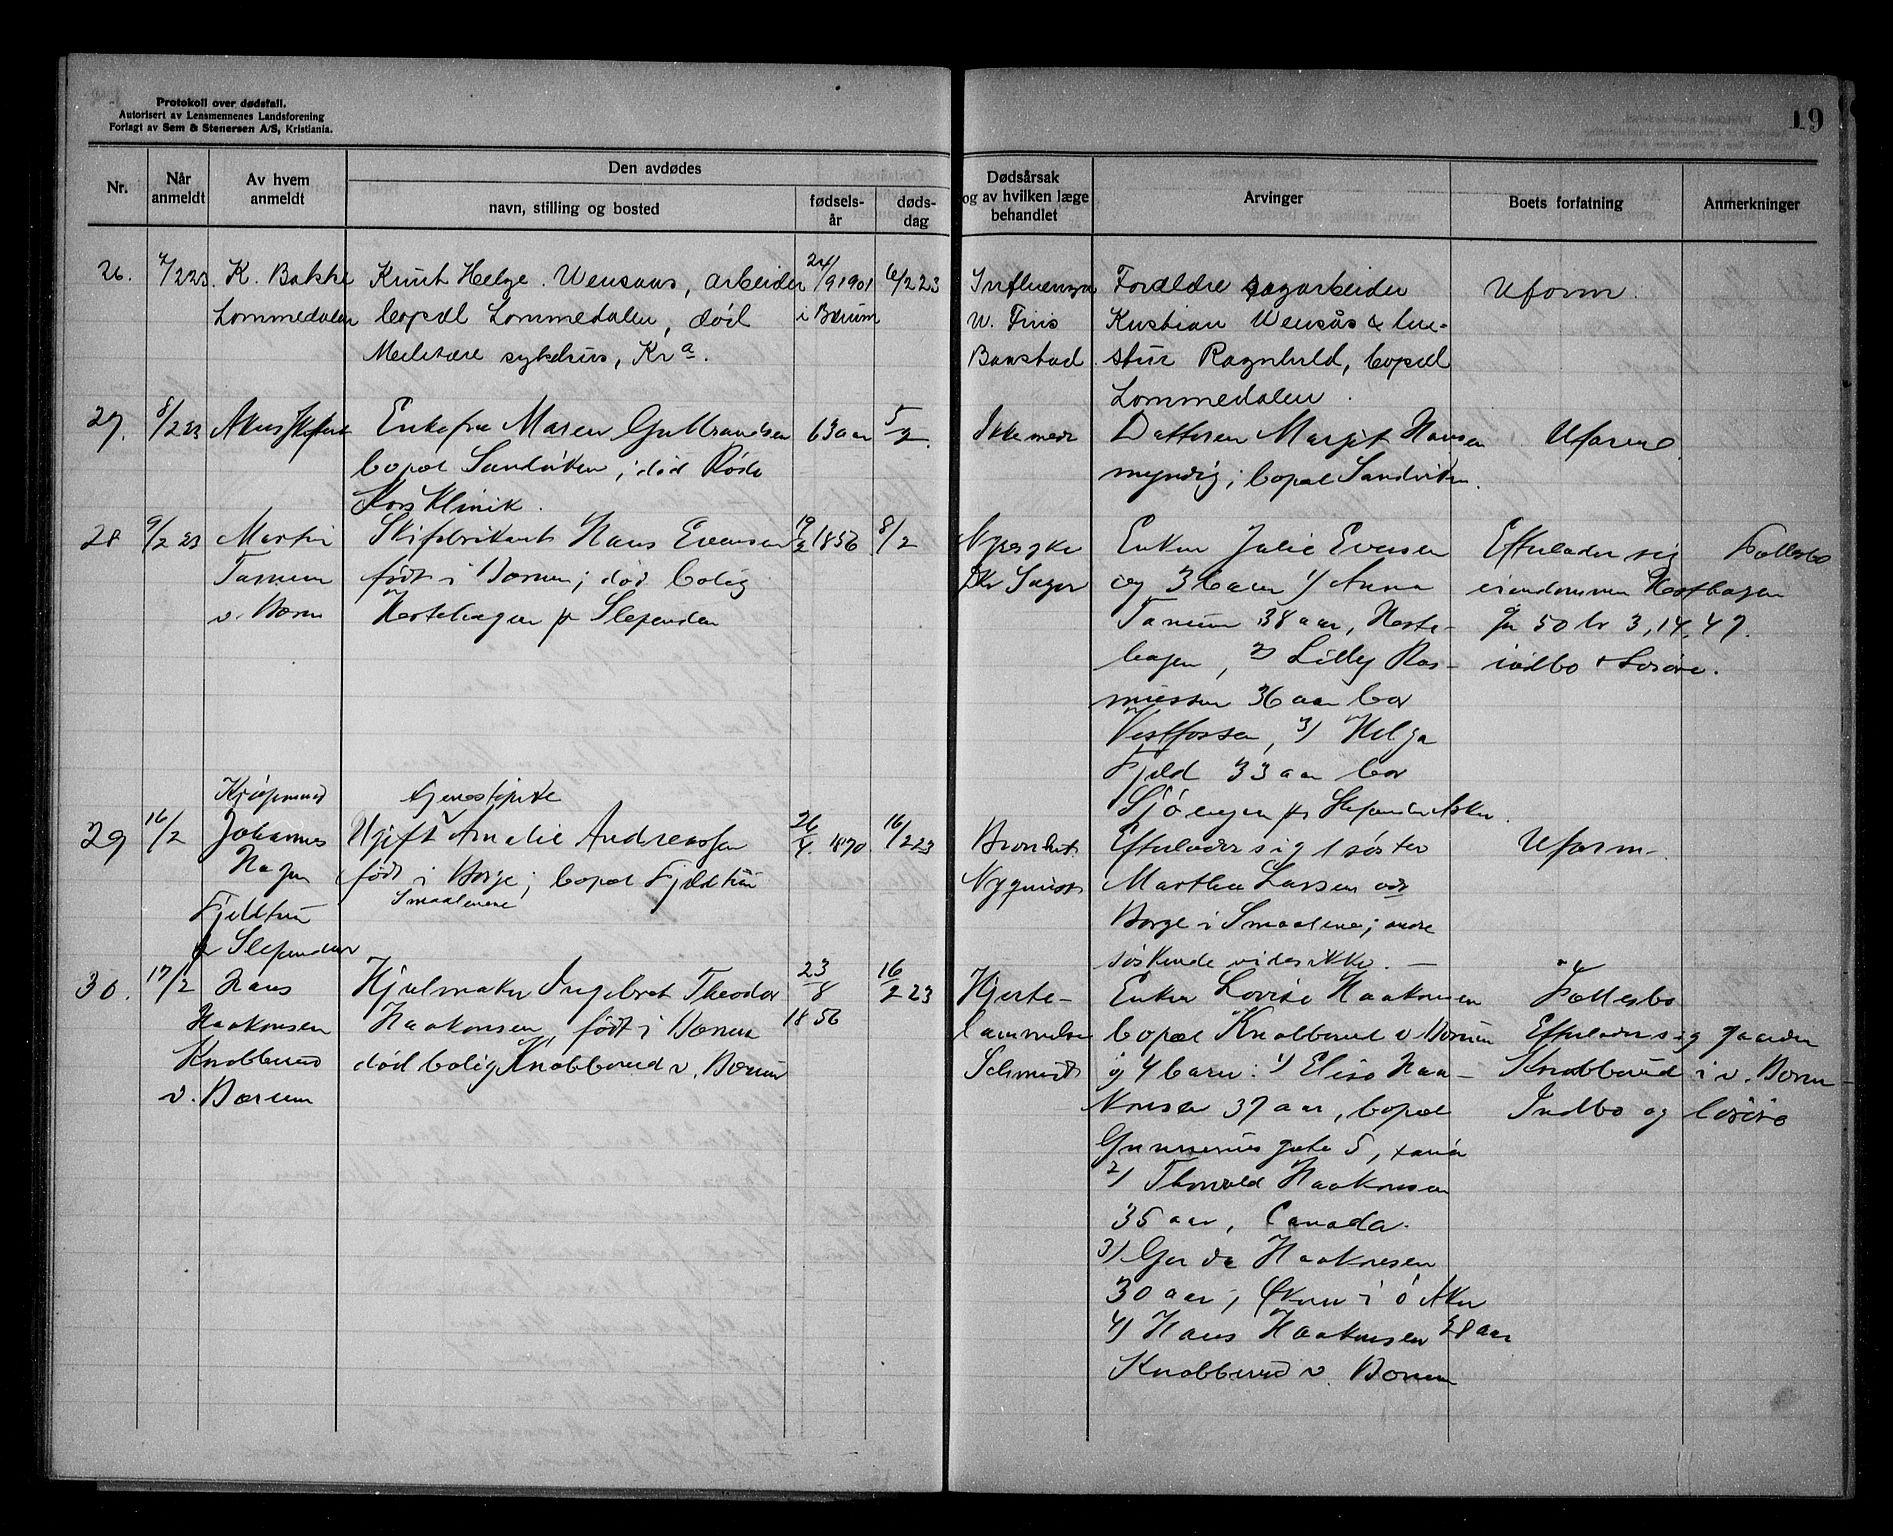 Protokoll over dødsfall.
Autorisert av Lensmennenes Landsforening
Forlagt av Sem & Stenersen A/S, Kristiania.
19
Nr.
Når anmeldt
Av hvem anmeldt
Den avdødes
navn, stilling og bosted
fødsels-år
døds-dag
Dødsårsak og av hvilken læge behandlet
Arvinger
Boets forfatning
Anmerkninger
26. 7/2 23 K. Bakke
Lommedalen
Knut Helge Wensaas, arbeider
bopæl Lommedalen, død
Militære sykehus, Kra.
24/9 1901
i Bærum
6/2 23
Influenza
Banstad
Forældre sagarbeider
Kristian Wensås & hu-
stru Ragnhild, bopæl
Lommedalen.
Uform.
27. 8/2 23 Akers
Enkefru Maren Gulbrandsen
bopæl Sandviken; død Røde
Kors Klinik.
63 aar
5/2.
Ikke
Datteren Margit Hansen
myndig; bopæl Sandviken.
Uform
28 9/2 23 Martin
Tanum
v. Bærum
Skifabrikant Hans Evensen
født i Bærum; død bolig
Hestehagen pr Slependen
19/2 1856
8/2
Nyresyke
Dr Sager
Enken Julie Evensen
og 3 barn 1/ Anna
Tanum 38 aar, Heste-
hagen, 2) Lilly Ras-
mussen 36 aar bor
Vestfossen, 3) Helga
Fjeld 33 aar bor
Sjøvegen pr Slependen Asker.
Efterlader sig
eiendommen Hesthagen
gn 50 br 3, 14, 47.
indbo & løsøre.
Fællesbo
29 16/2
Johannes
Hagen
Fjeldtun
pr Slependen
tjenestepike
Ugift Amalie Andreassen
født i Borge; bopæl Fjeldtun
Smaalenene
26/4 1870
16/2 23
Bronkit.
Nyquist
Efterlader sig 1 søster
Marthea Larsen adr
Borge i Smaalene; andre
søskende vides ikke. —
Uform.
30. 17/2 Hans
Haakonsen
Knabberud
v. Bærum
Hjulmaker Ingebret Theodor
Haakonsen, født i Bærum
død bolig Knabberud v. Bærum
23/8
1856
16/2 23
Hjerte-
lammelse
Schmidt
Enken Lovise Haakonsen
bopæl Knabberud v Bærum
og 4 barn: 1/ Elise Haa-
konsen 37 aar, bopæl
Gunnerius gate 5, Xania
2) Thorvald Haakonsen
35 aar, Canada.
3) Gerda Haakonsen
30 aar, Økern i Ø Aker
4) Hans Haakonsen 28 aar
Knabberud v. Bærum
Fællesbo
Efterlader sig gaarden
Knabberud i v. Bærum
Indbo og løsøre